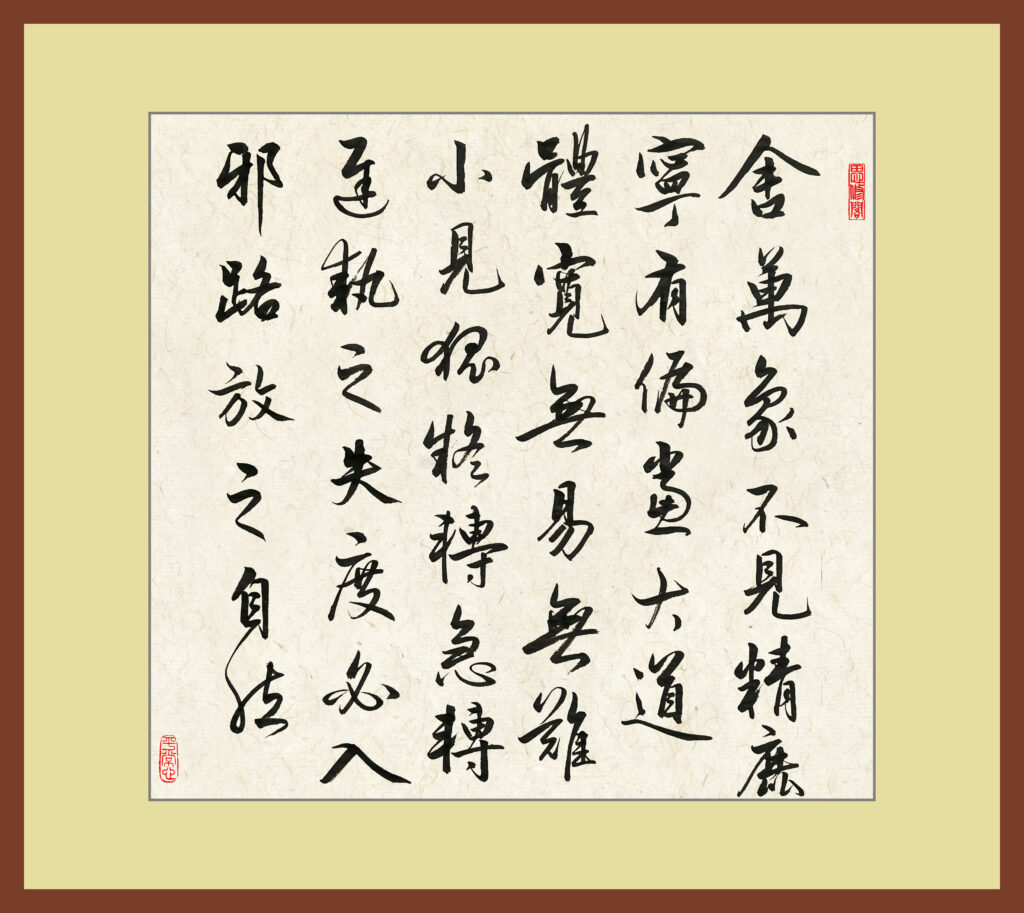 思修閣
舍萬象不見精麤
寧有偏黨大道
體寬無易無難
小見狐疑轉急轉
遲執之失度必入
邪路放之自然
平常心